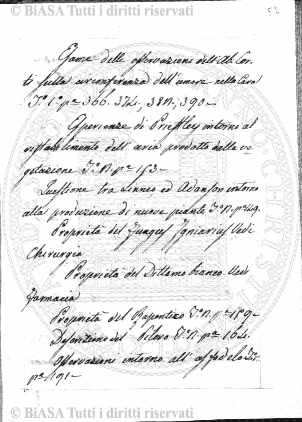 © BIASA Tutti i diritti riservati
52
Esame delle osservazione dell'Ab. Cor-
ti sulla circonferenza dell'umore nella Cara
T.° 1.° p.e 366. 374, 390-
Esperienze di Priestley intorno al
ristabilimento dell'aria prodotto dalla ve-
getazione T.° p.e 153-
Questione tra Linneo ed Adanson intorno
alla produzione di nuove piante T.°
Proprietà del Fungus Igniarius Vedi
Chirurgia
Proprietà del Dittamo bianco Vedi
Farmacia
Proprietà del T.° p.e 159-
Descrizione del T.° p.e 164.
Osservazione intorno all'asfodelo T.°
p.e 191-
© BIASA Tutti i diritti riservati